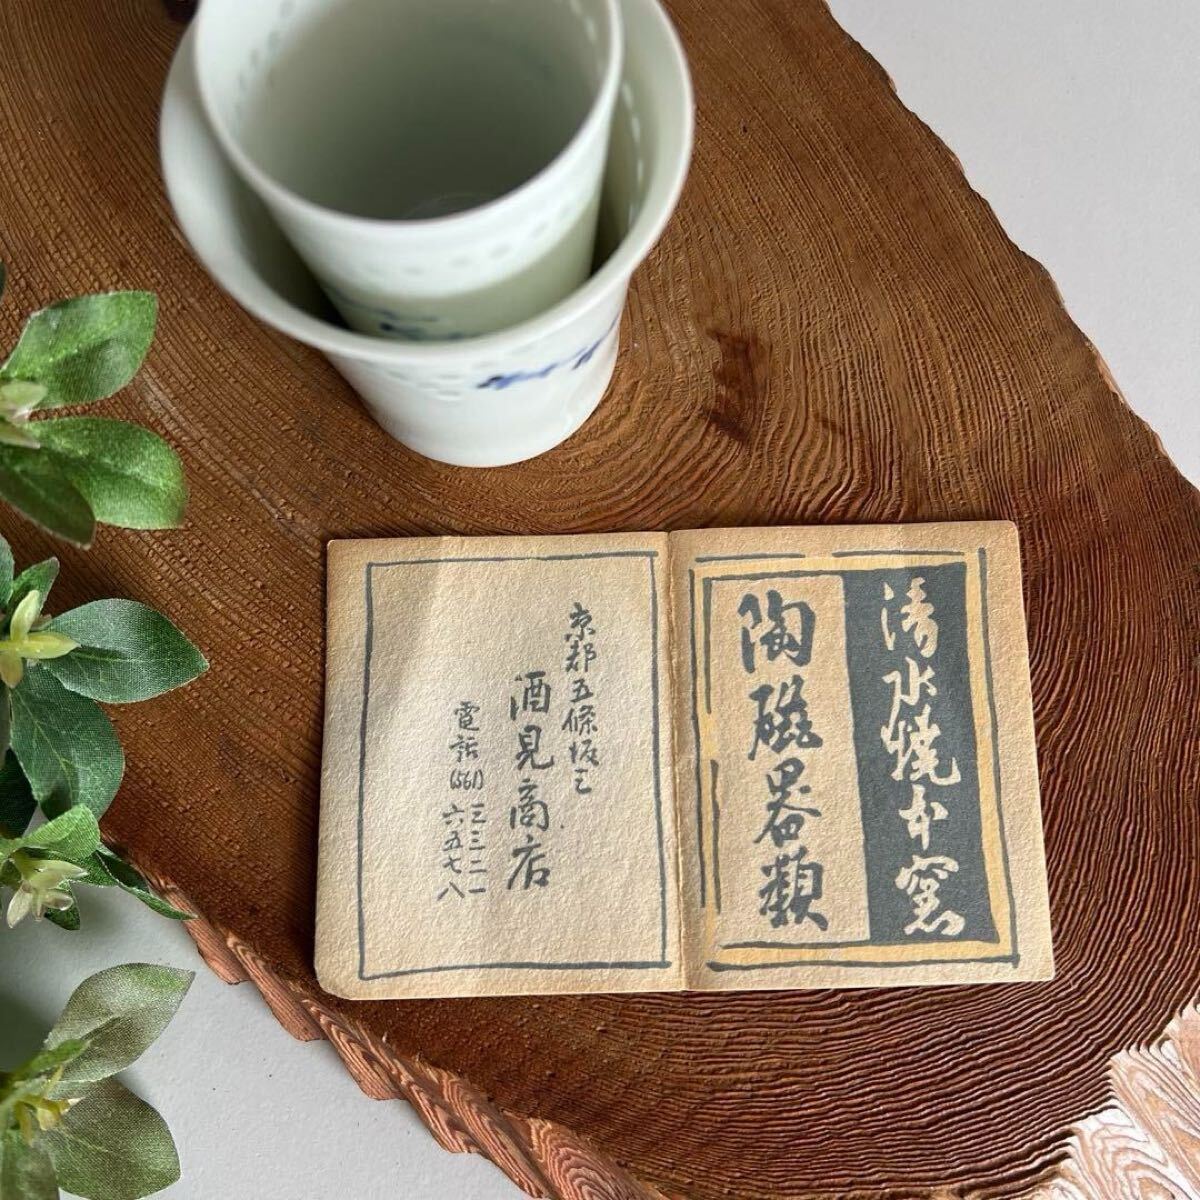 清水焼本窯
陶磁器類
京都五條坂
酒見商店
電話(561)三三二一
六五七八